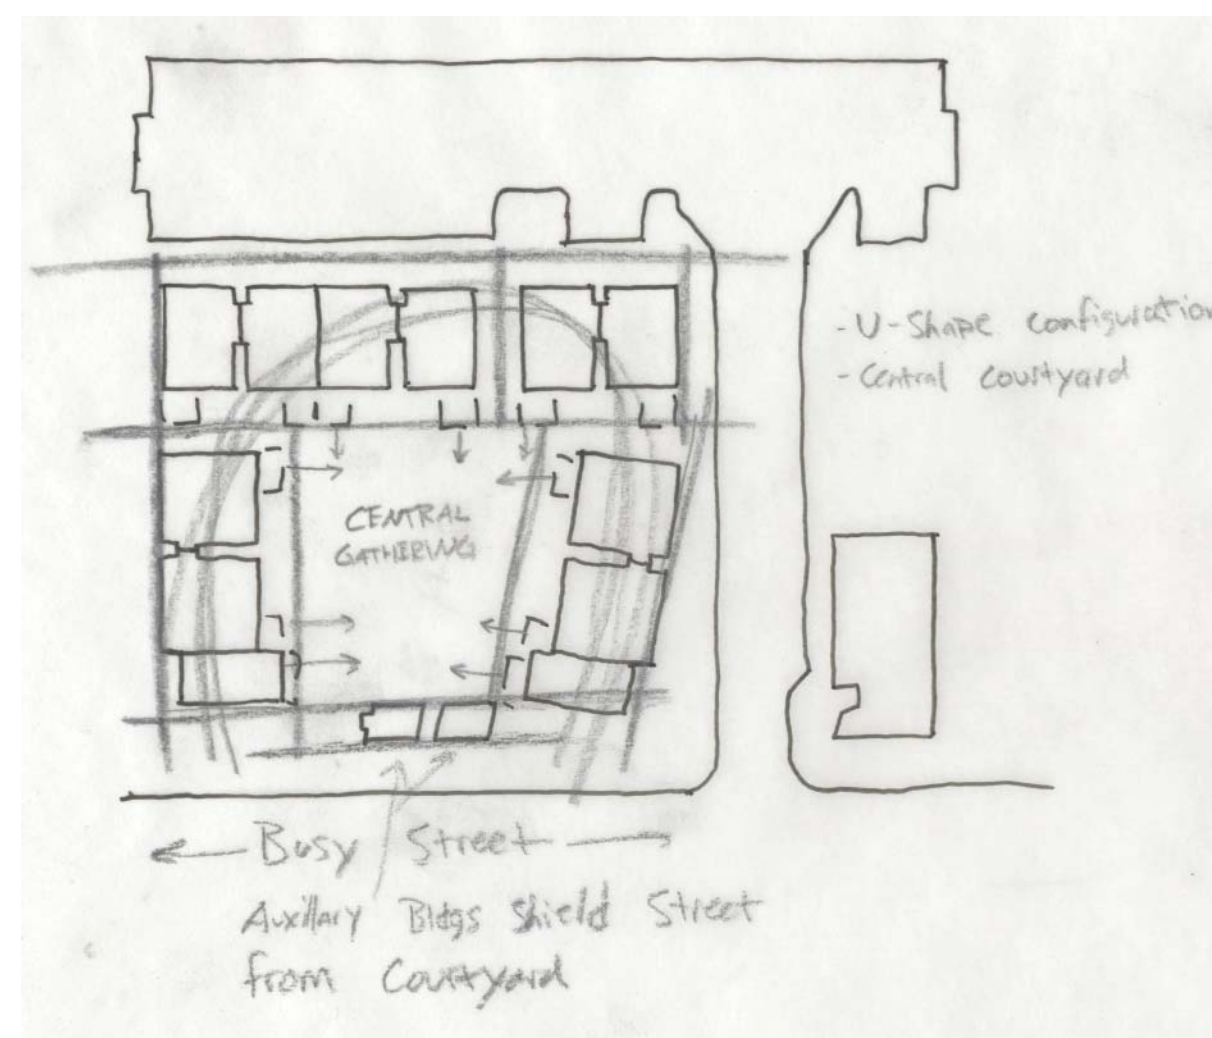 - U-Shape configuration
- Central courtyard
CENTRAL
GATHERING
Busy Street
Auxillary Bldgs Shield Street
from Courtyard